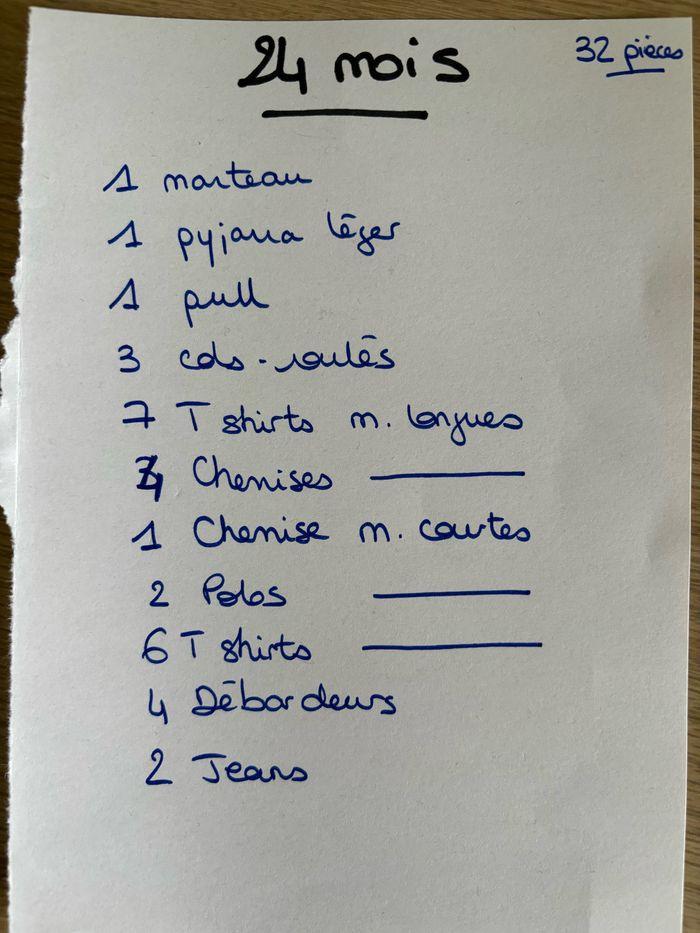 24 mois
32 pièces
1 manteau
1 pyjama léger
1 pull
3 cols-roulés
7 T shirts m. longues
4 Chemises
1 Chemise m. courtes
2 Polos
6 T shirts
4 Débardeurs
2 Jeans